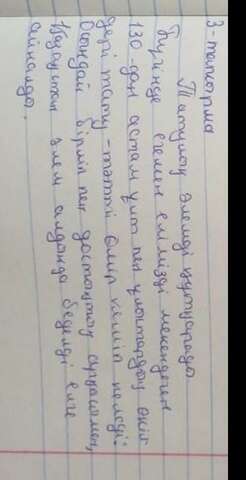 3-тапсырма
Татулық әлемді құтқарады
Бүгінде егемен елімізді мекендеген
130-дан астам ұлт пен ұлыстардың өкіл
дері тату-тәтті өмір кешіп келеді.
Осындай бірлік пен достықтың арқасында,
Қазақстан әлем алдында беделді елге
айналды.